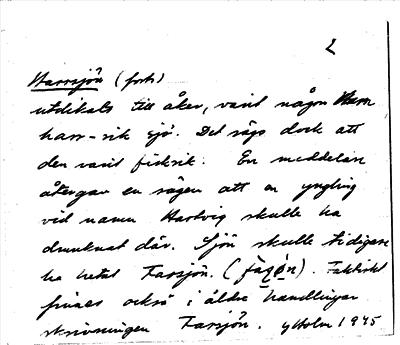 2
Harrsjön (forts)
utdikats till åker, varit någon Harr
harr-rik sjö. Det sägs dock att
den varit fiskrik. En meddelare
återgav en sägen att en yngling
vid namn Hartvig skulle ha
drunknat där. Sjön skulle tidigare
ha hetat Farsjön. (fàʒǿn). Faktiskt
finnes också i äldre handlingar
skrivningen Farsjön. yttolm 1945